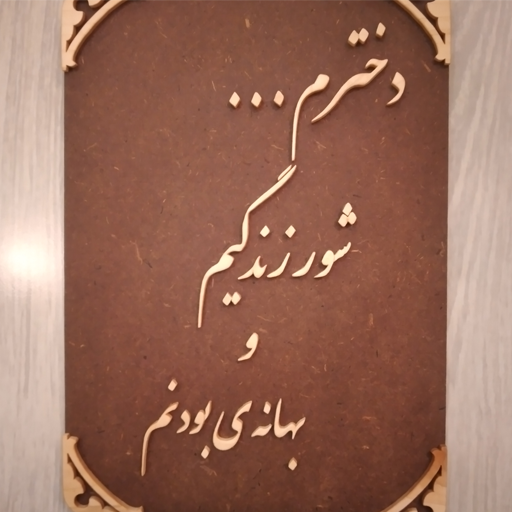 دخترم ...
شور زندگیم
و
بهانه‌ی بودنم